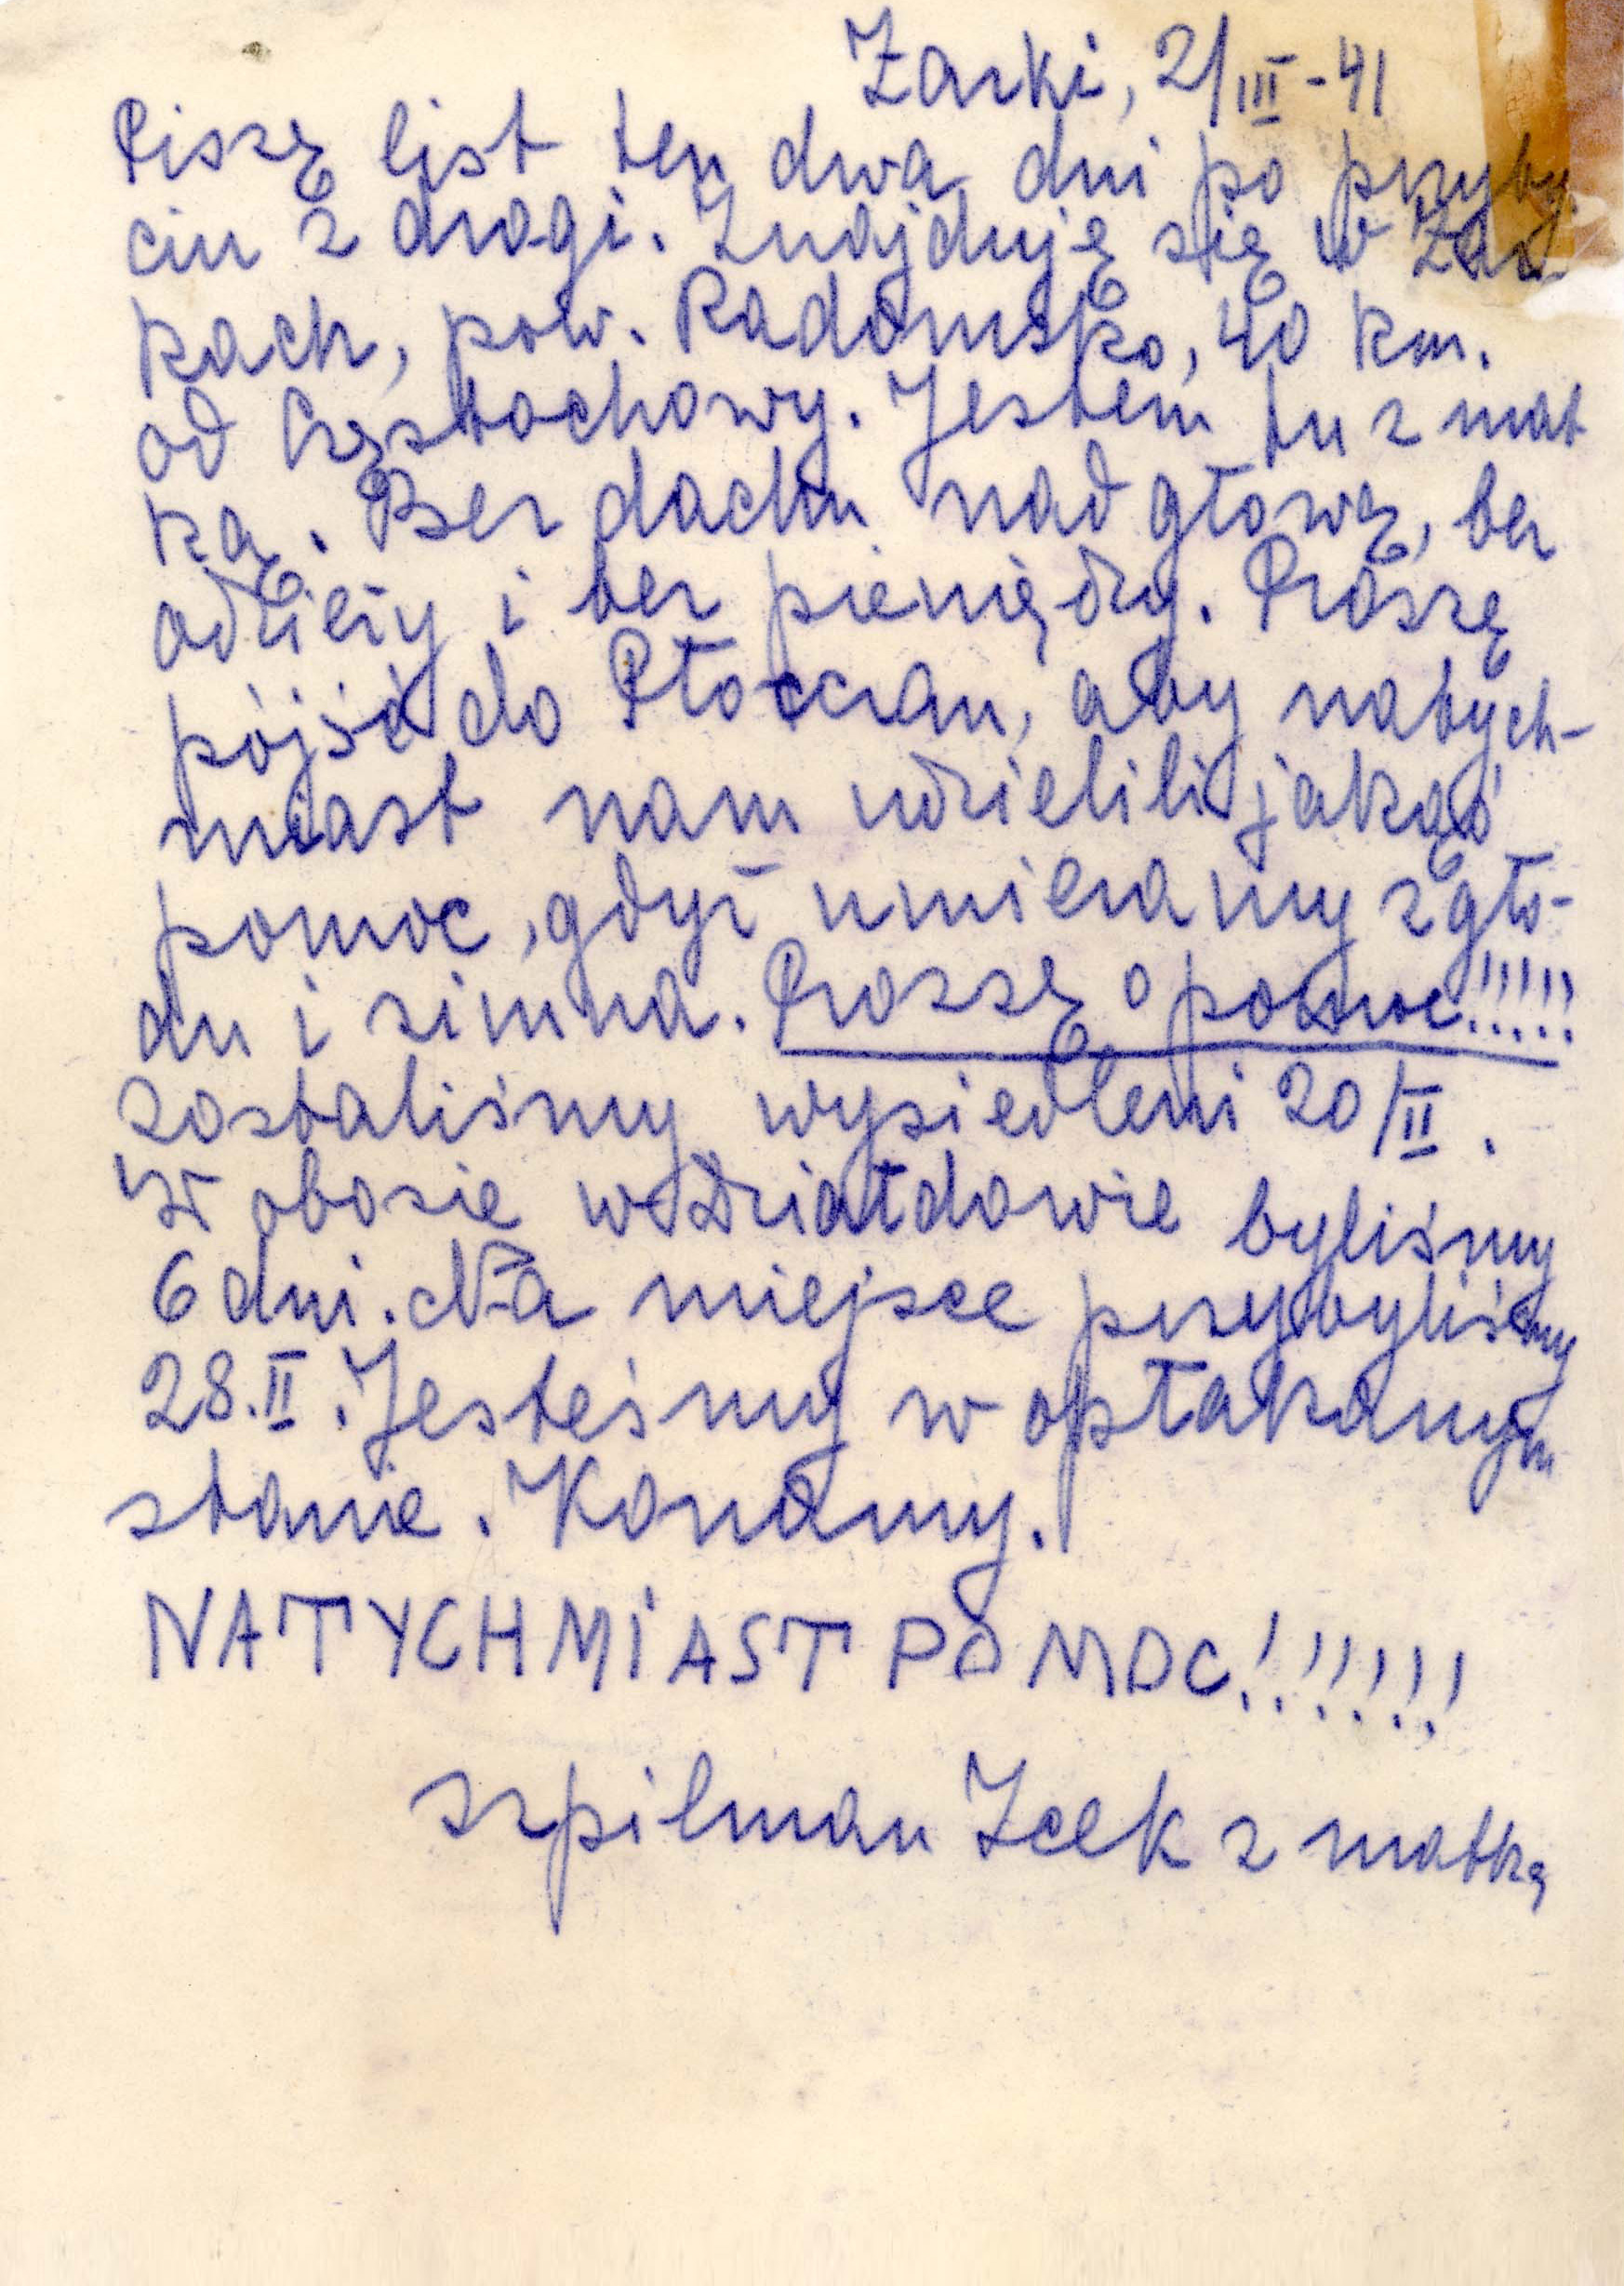 Żarki, 2/III-41
Piszę list ten dwa dni po przyby-
ciu z drogi. Znajduję się w Żar-
kach, pow. Radomsko, 40 km.
od Częstochowy. Jestem tu z mat
ką. Bez dachu nad głową, bez
odzieży i bez pieniędzy. Proszę
pójść do Płocczan, aby natych-
miast nam udzielili jakąś
pomoc, gdyż umieramy z gło-
du i zimna. Proszę o pomoc!!!!!
Zostaliśmy wysiedleni 20/II.
W obozie w Działdowie byliśmy
6 dni. Na miejsce przybyliśmy
28.II. Jesteśmy w opłakanym
stanie. Konamy.
NATYCHMIAST POMOC!!!!!!
Szpilman Icek z matką